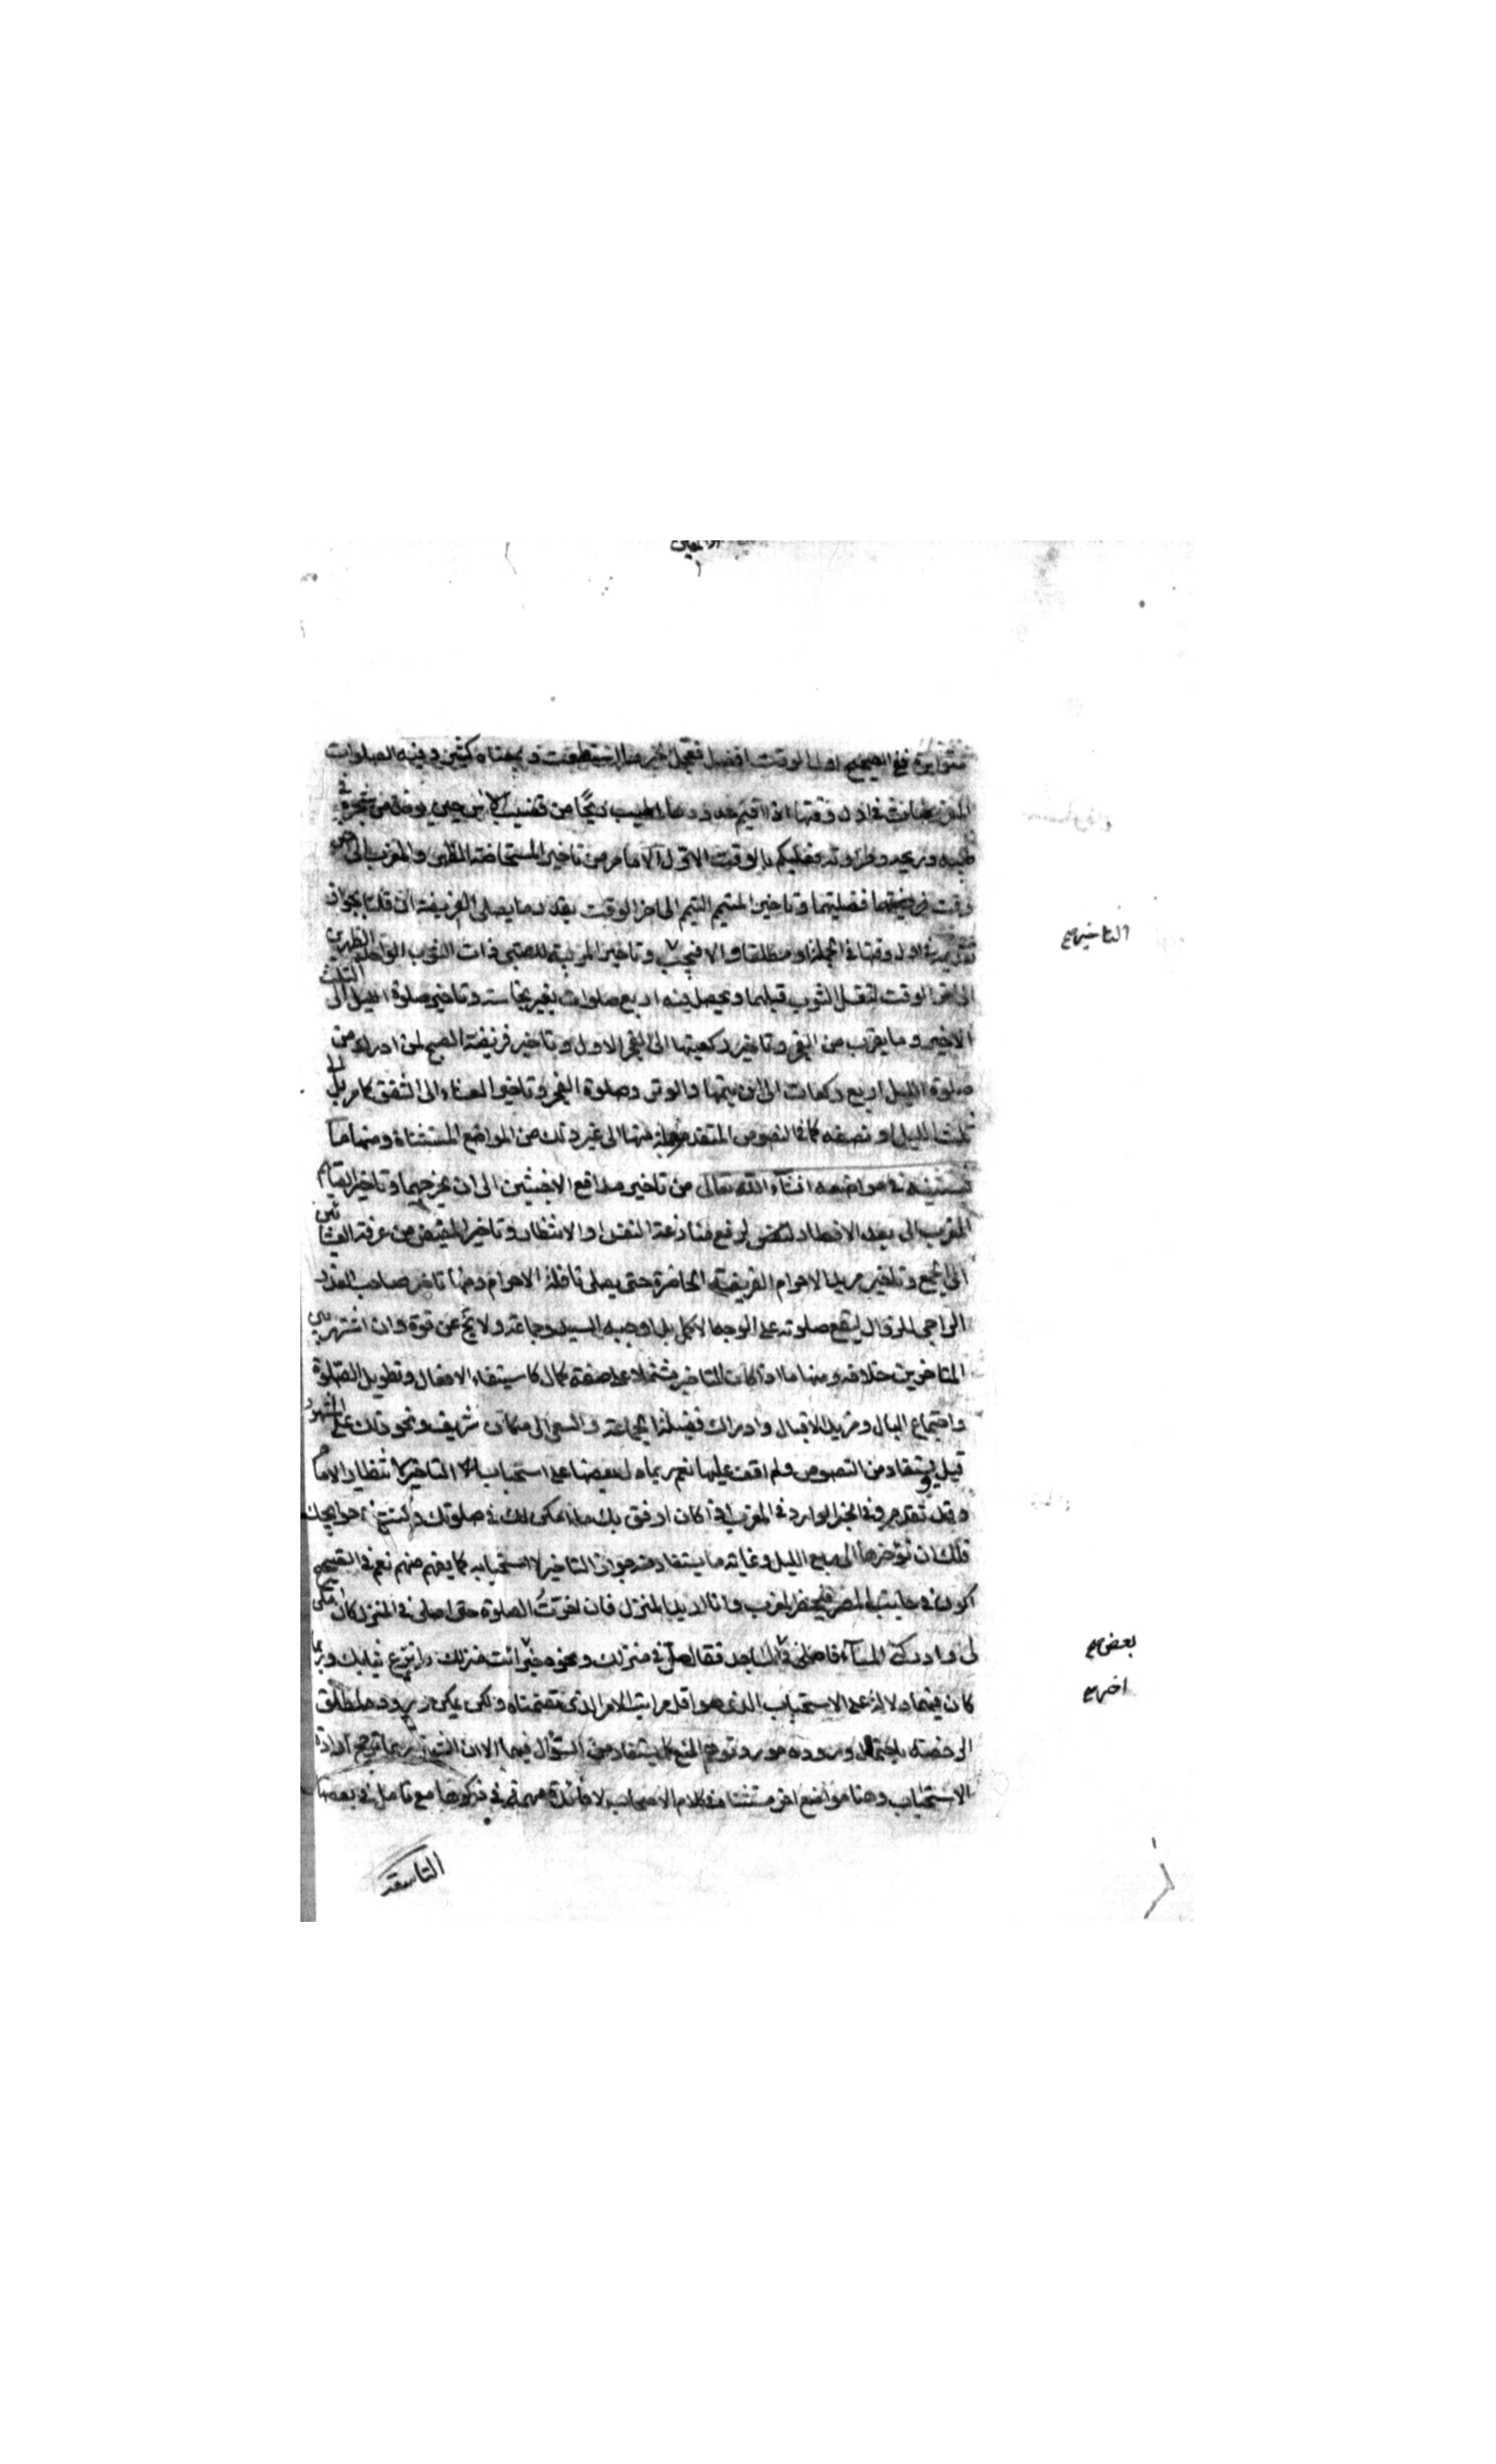 متواترة ففي الصحيح اول الوقت افضل فعجل الخير ما استطعت وبمعناه كثير وفيه الصلوات
المفروضات في اول وقتها اذا اقيم حدودها اطيب ريحا من قضيب الآس حين يؤخذ من شجره في
طيبه وريحه وطراوته فعليكم بالوقت الاول الا ما مر من تاخير المستحاضة الظهر والمغرب الى اخر
وقت فضيلتهما وتاخير المتيمم التيمم الى اخر الوقت بقدر ما يصلي الفريضة ان قلنا بجواز
تقديمه في اول وقتها في الجملة او مطلقا والا فيجب وتاخير المربية للصبي ذات الثوب الواحد الظهرين
الى اخر الوقت لتغسل الثوب قبلهما ويحصل فيه اربع صلوات بغير نجاسة وتاخير صلوة الليل الى الثلث
الاخير وما يقرب من الفجر وتاخير ركعيتها الى الفجر الاول وتاخير فريضة الصبح لمن ادرك من
صلوة الليل اربع ركعات الى ان يتمها والوتر وصلوة الفجر وتاخير العشاء الى الشفق كما مر بل الى
ثلث الليل او نصفه كما في النصوص المتقدمة جملة منها الى غير ذلك من المواضع المستثناة ومنها ما
نستثنيه في مواضعه انشآء الله تعالى من تاخير مدافع الاخبثين الى ان يخرجهما وتاخير الصايم
المغرب الى بعد الافطار لتضى لرفع منازعة النفس او الانتظار وتاخير المفيض من عرفة العشائين
الى جمع وتاخير مريد الاحرام الفريضة الحاضرة حتى يصلي نافلة الاحرام ومنها تاخير صاحب العذر
الراجي للزوال ليقع صلوته على الوجه الاكمل بل اوجبه السيد وجماعة ولا يخ عن قوة وان اشتهر بين
المتاخرين خلافه ومنها ما اذا كان التاخير مشتملا على صفة كمال كاستيفاء الافعال وتطويل الصلوة
واجتماع البال ومزيد الاقبال وادراك فضيلة الجماعة والسعي الى مكان شريف ونحو ذلك على المشهور
قيل ويستفاد من النصوص ولم اقف عليها نعم ربما دل بعضها على استحباب التاخير لانتظار الامام
وقد تقدم في الخبر الوارد في المغرب اذا كان ارفق بك وامكن لك في صلوتك وكنت في حوايجك
فلك ان تؤخرها الى ربع الليل وغايته ما يستفاد منه جواز التاخير لا استحبابه كما يفهم منهم نعم في الصحيح
اكون في جانب المصر فيحضر المغرب وانا اريد المنزل فان اخرت الصلوة حتى اصلي في المنزل كان امكن
لي وادركني المسآء فاصلي في المساجد فقال صل في منزلك ونحوه خبر ائت منزلك وانزع ثيابك وربما
كان فيهما دلالة على الاستحباب الذي هو اقل مراتب الامر الذي تضمناه ولكن يمكن وروده لمطلق
الرخصة باحتمال وروده مورد توهم المنع كما يستفاد من السؤال فيهما الا ان الشهرة ربما ترجح ارادة
الاستحباب وهنا مواضع اخر مستثناة في كلام الاصحاب لا فائدة مهمة في ذكرها مع تامل في بعضها
التاخير صح
بعض صح
اخر صح
التاسعة